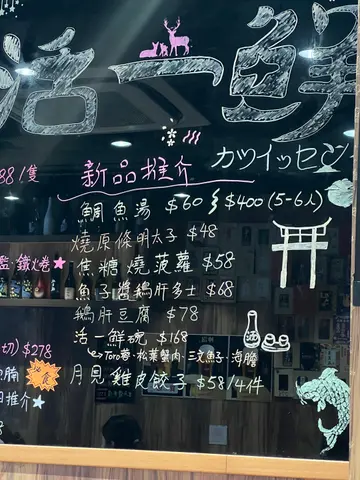 活一鮮
カツイッセン
新品推介
鯛魚湯 $60 / $400 (5-6人)
燒原條明太子 $48
焦糖燒菠蘿 $58
魚子醬鵝肝多士 $68
鵝肝豆腐 $78
活一鮮碗 $168
Toro蓉·松葉蟹肉·三文魚子·海膽
月見雞皮餃子 $58/4件
88/隻
鐵火卷★
切) $278
腩
推介
酒